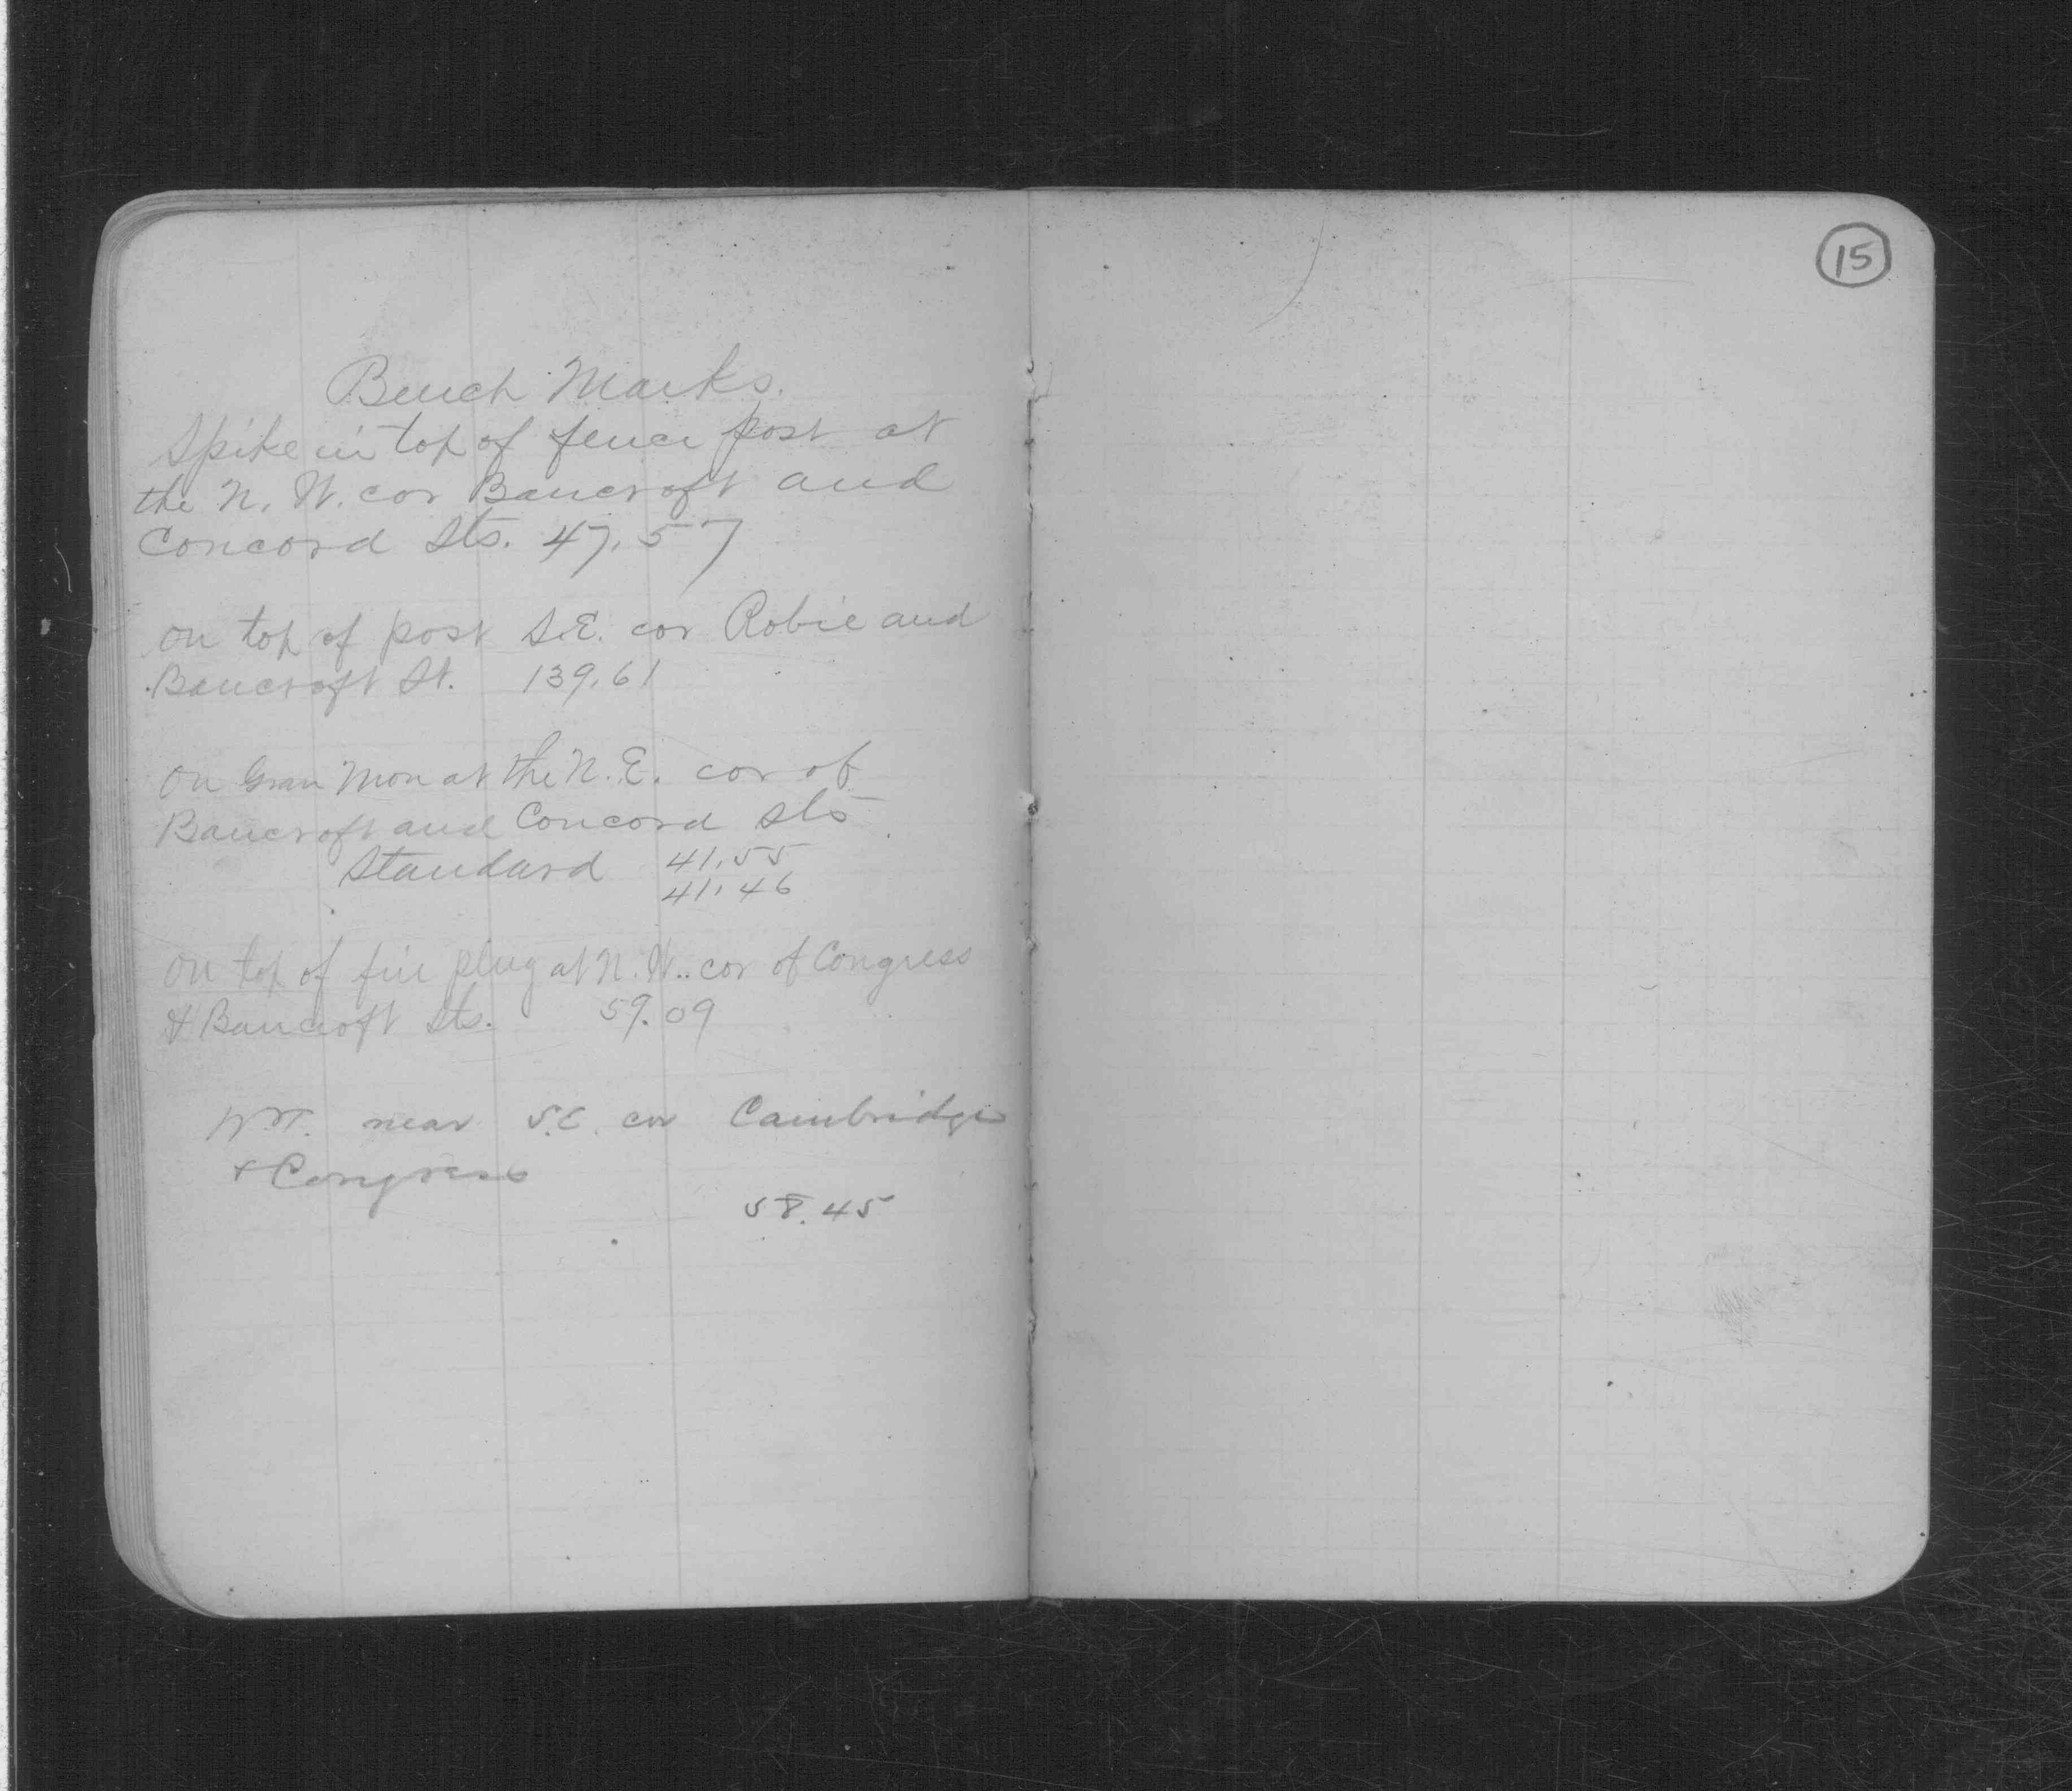 Bench Marks.
Spike in top of fence post at
the N. W. cor Bancroft and
Concord Sts. 47.57
on top of post S.E. cor Robie and
Bancroft St. 139.61
On Gran Mon at the N. E. cor of
Bancroft and Concord Sts.
Standard 41.55
41.46
On top of fire plug at N. W. cor of Congress
& Bancroft Sts. 59.09
near S.E. cor Cambridge
+ Congress
58.45
15